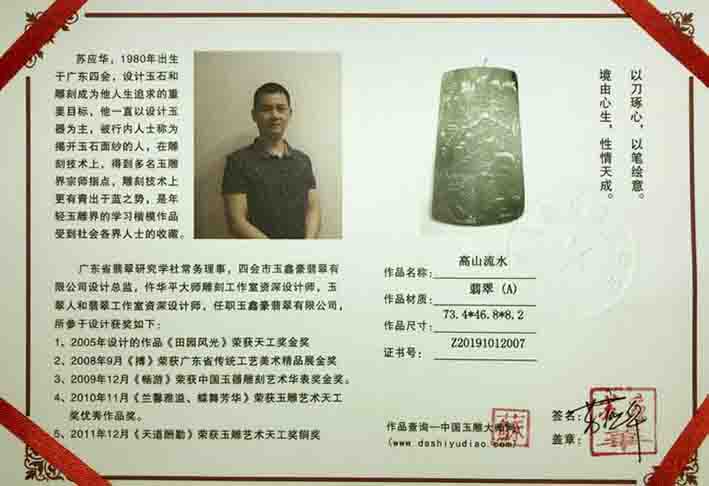 苏应华，1980年出生
于广东四会，设计玉石和
雕刻成为他人生追求的重
要目标，他一直以设计玉
器为主，被行内人士称为
揭开玉石面纱的人，在雕
刻技术上，得到多名玉雕
界宗师指点，雕刻技术上
更有青出于蓝之势，是年
轻玉雕界的学习楷模作品
受到社会各界人士的收藏。
广东省翡翠研究学社常务理事，四会市玉鑫豪翡翠有
限公司设计总监，仵华平大师雕刻工作室资深设计师，玉
翠人和翡翠工作室资深设计师，任职玉鑫豪翡翠有限公司，
所参于设计获奖如下：
1、2005年设计的作品《田园风光》荣获天工奖金奖
2、2008年9月《搏》荣获广东省传统工艺美术精品展金奖
3、2009年12月《畅游》荣获中国玉器雕刻艺术华表奖金奖。
4、2010年11月《兰馨雅溢、蝶舞芳华》荣获玉雕艺术天工
奖优秀作品奖。
5、2011年12月《天道酬勤》荣获玉雕艺术天工奖铜奖
以刀琢心，以笔绘意。
境由心生，性情天成。
作品名称：高山流水
作品材质：翡翠 (A)
作品尺寸：73.4*46.8*8.2
证书号：Z20191012007
作品查询—中国玉雕大师网
(www.dashiyudiao.com)
蘇
签名：
盖章：